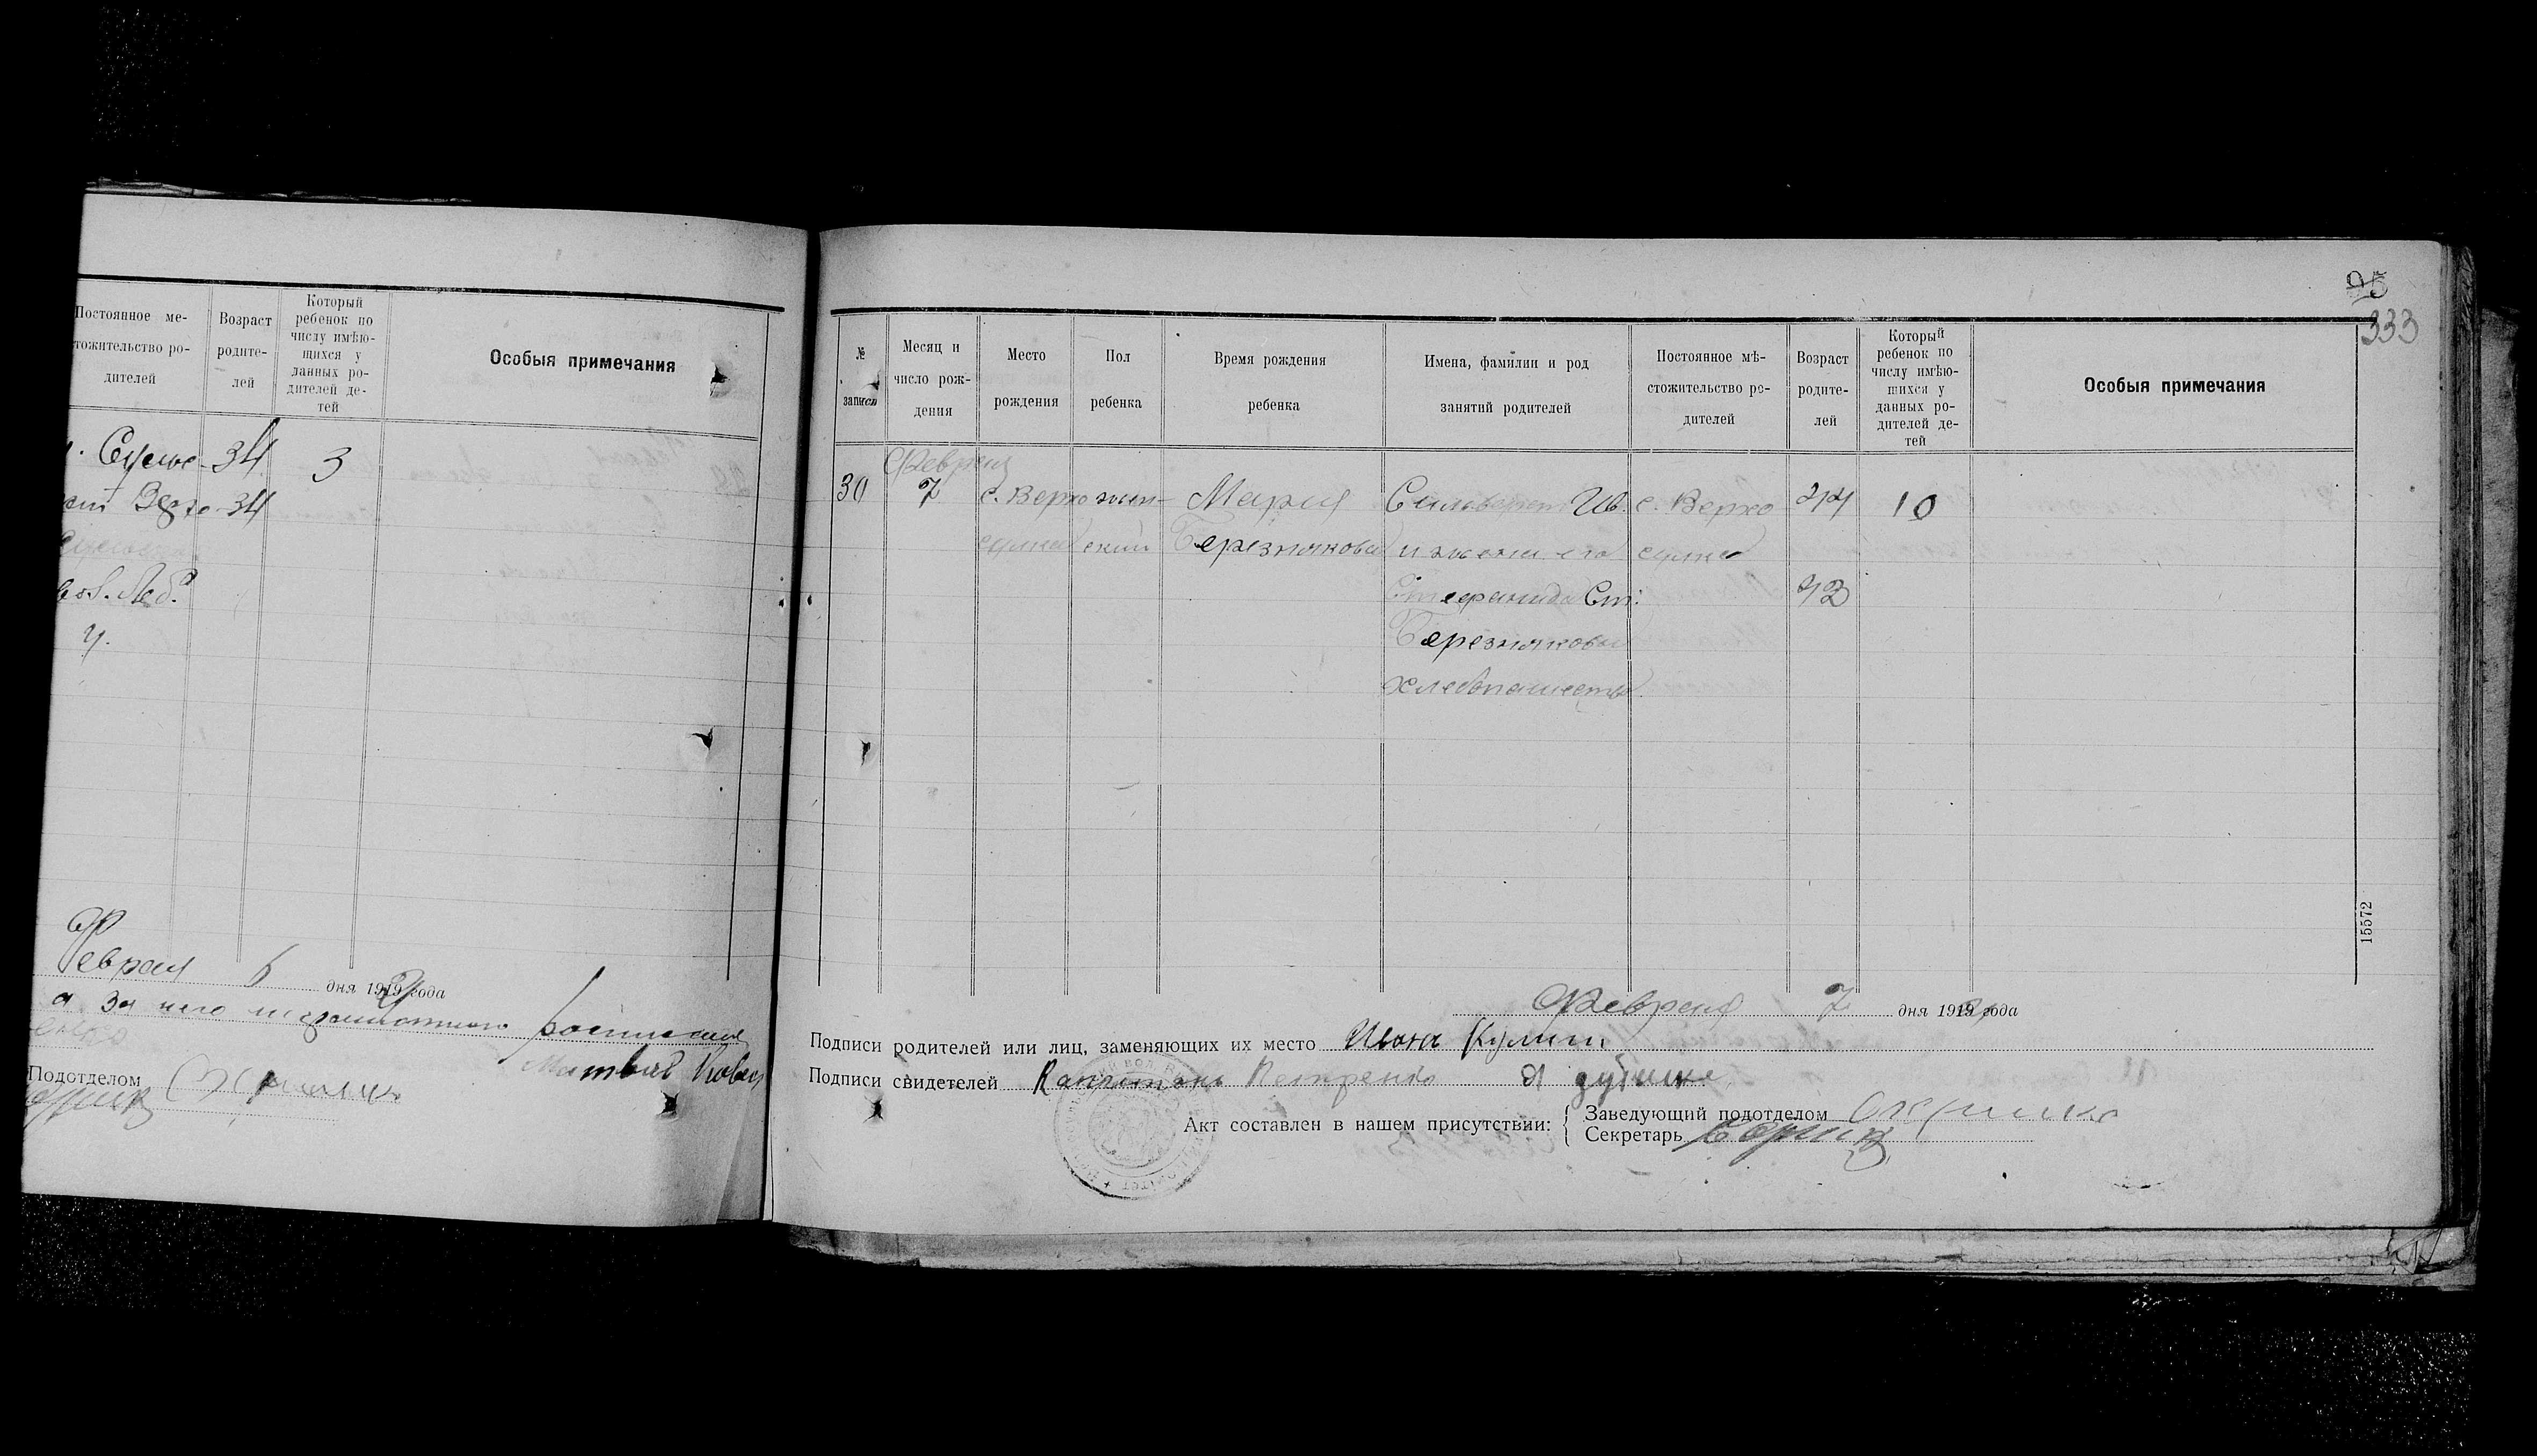 Постоянное ме-
тожительство ро-
дителей
Возраст
родите-
лей
Который
ребенок по
числу имѣю-
щихся у
данных ро-
дителей де-
тей
Особыя примечания
34
3
34
Февраля 6 дня 1919 года
а за него неграмотного росписался
Матвей
Подотделом
95
333
№
записи
Месяц и
число рож-
дения
Место
рождения
Пол
ребенка
Время рождения
ребенка
Имена, фамилии и род
занятий родителей
Постоянное мѣ-
стожительство ро-
дителей
Возраст
родите-
лей
Который
ребенок по
числу имѣю-
щихся у
данных ро-
дителей де-
тей
Особыя примечания
Февраля
30 7 с. Верхо жен- Мария Сильверст Ив. с. Верхо 44 10
сулка ский Березнякова и жена его сулка
Стефанида Ст. 43
Березняковы
хлебопашество.
15572
Февраля 7 дня 1919 года
Подписи родителей или лиц, заменяющих их место Иван Кулиш
Подписи свидетелей Капитон Петренко
Акт составлен в нашем присутствии:
Заведующий подотделом
Секретарь